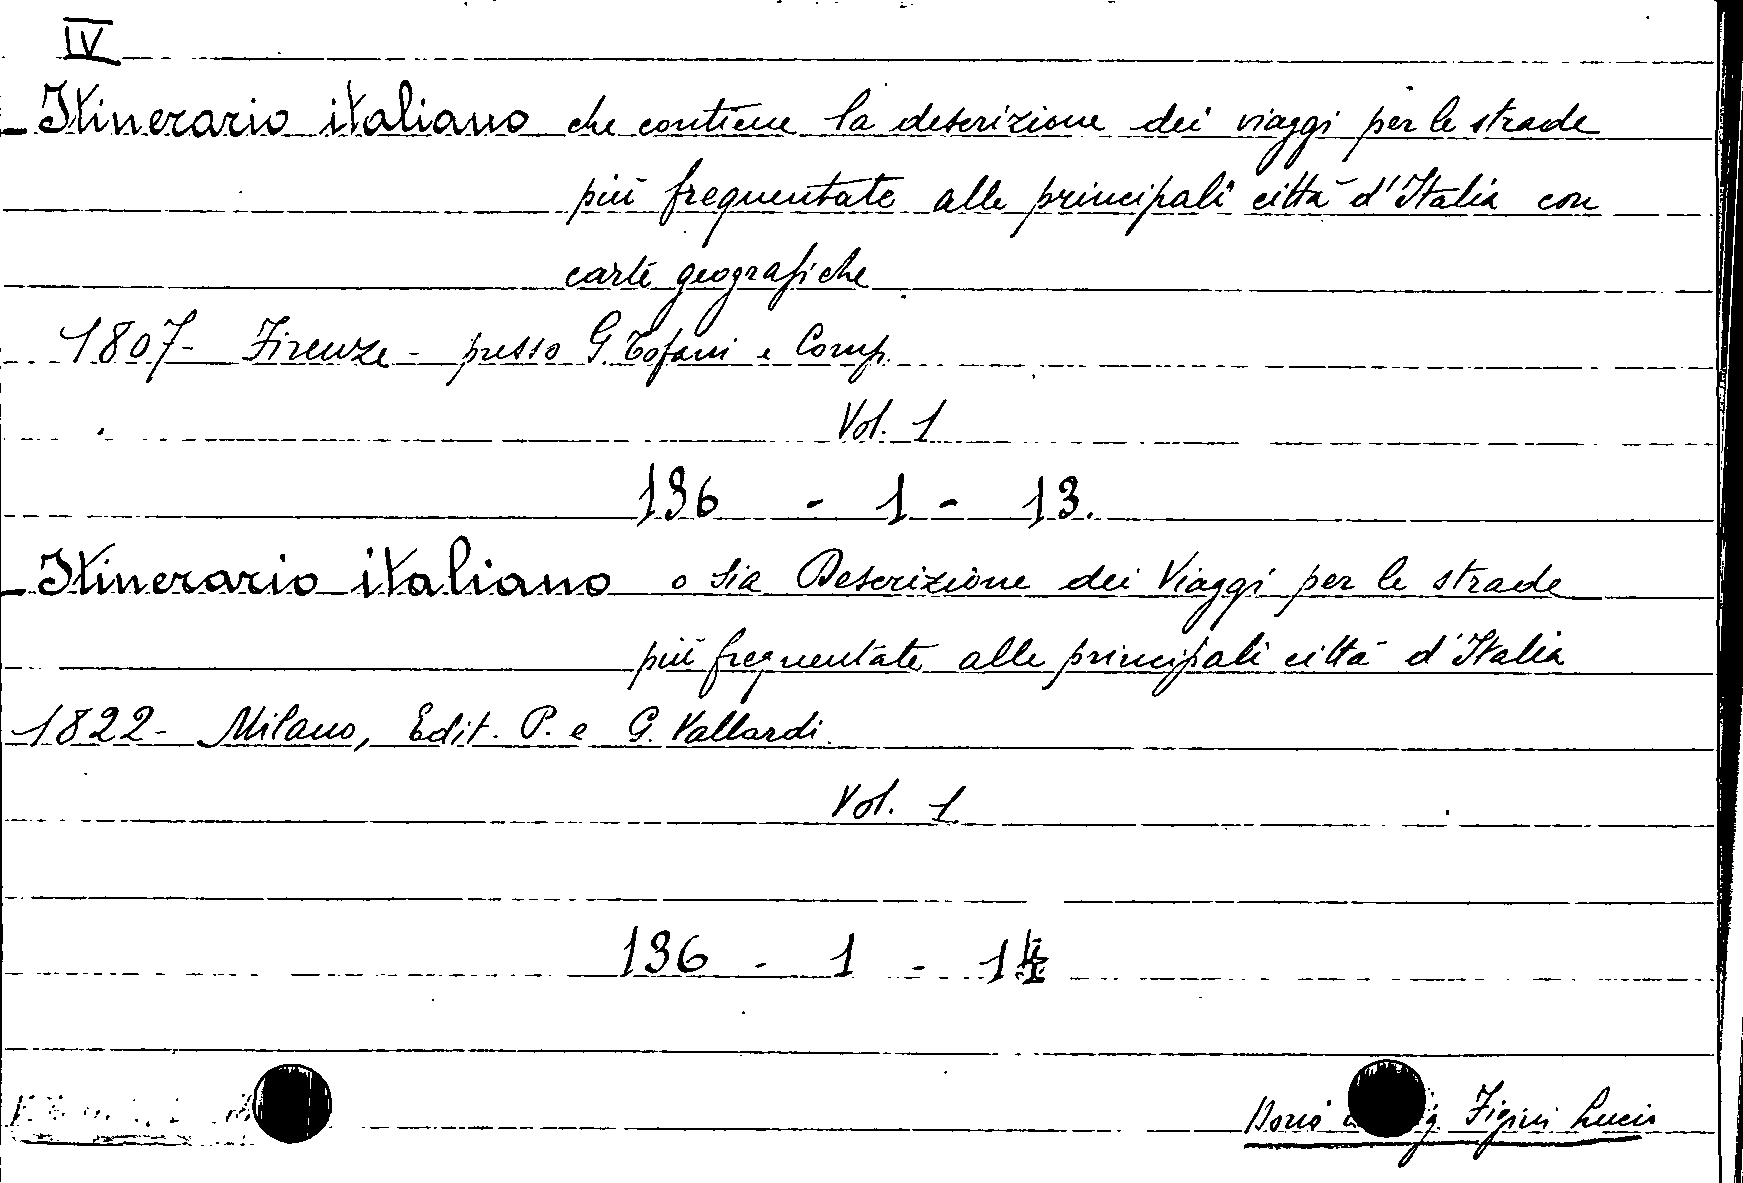 IV
- Itinerario italiano che contiene la descrizione dei viaggi per le strade
più frequentate alle principali città d'Italia con
carte geografiche
1807 - Firenze - presso G. Tofani e Comp.
Vol. 1
136 - 1 - 13.
- Itinerario italiano o sia Descrizione dei Viaggi per le strade
più frequentate alle principali città d'Italia
1822 - Milano, Edit. P. e G. Vallardi
Vol. 1
136 - 1 - 14
Dono Figini Lucio